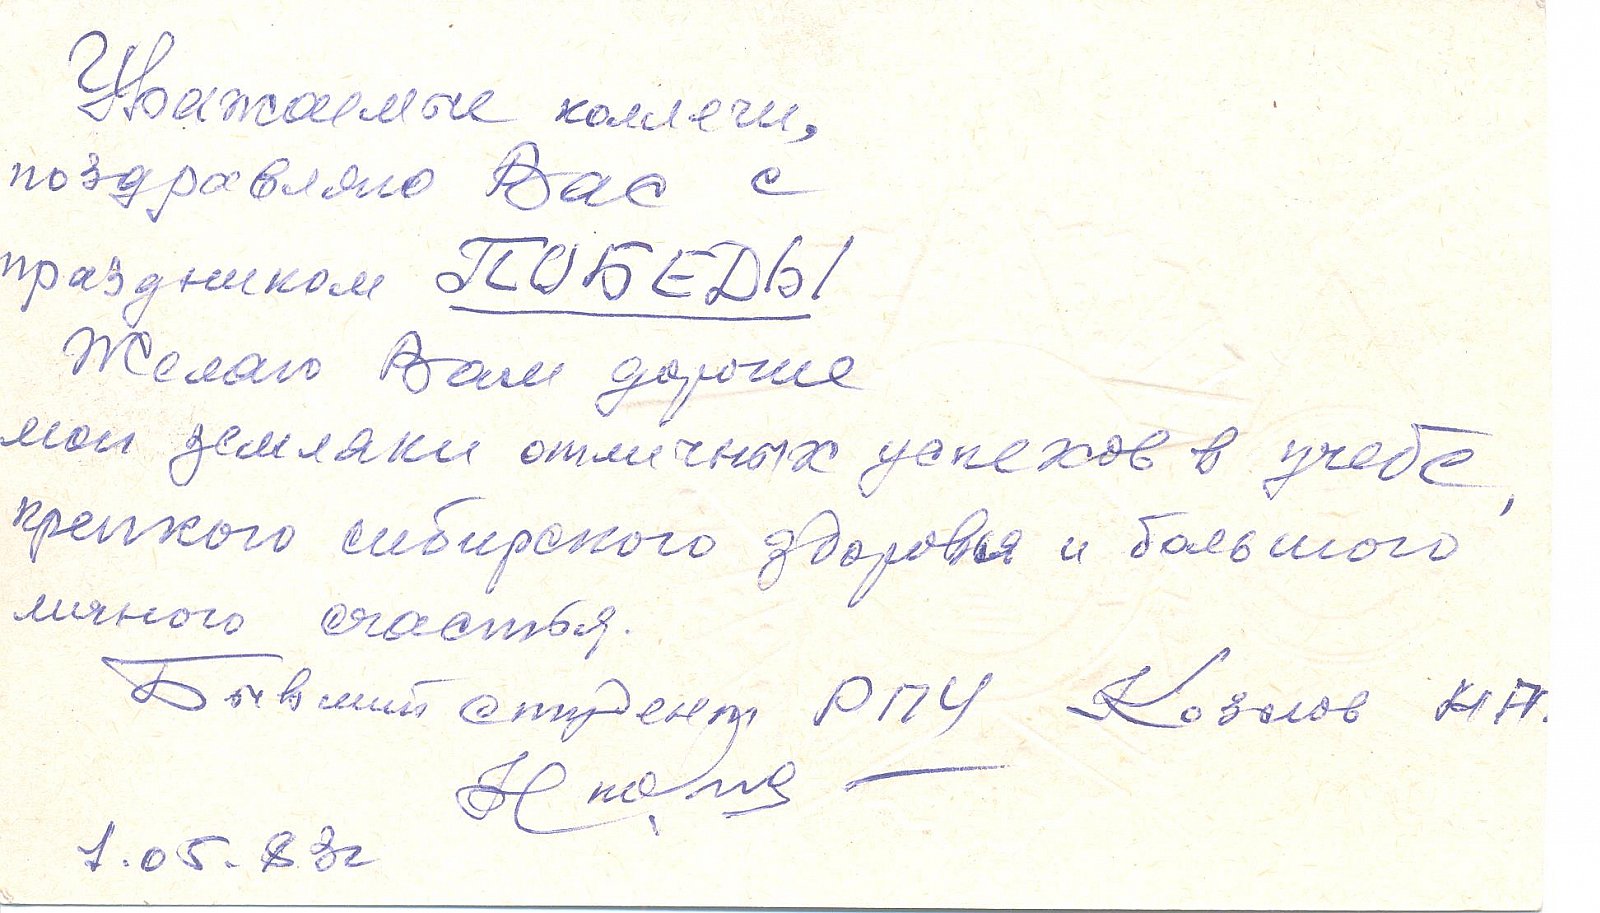 Уважаемые коллеги,
поздравляю Вас с
праздником ПОБЕДЫ
Желаю Вам дорогие
мои земляки отличных успехов в учебе,
крепкого сибирского здоровья и большого
личного счастья.
Бывший студент РПУ Козлов Н.П.
1.05.83г